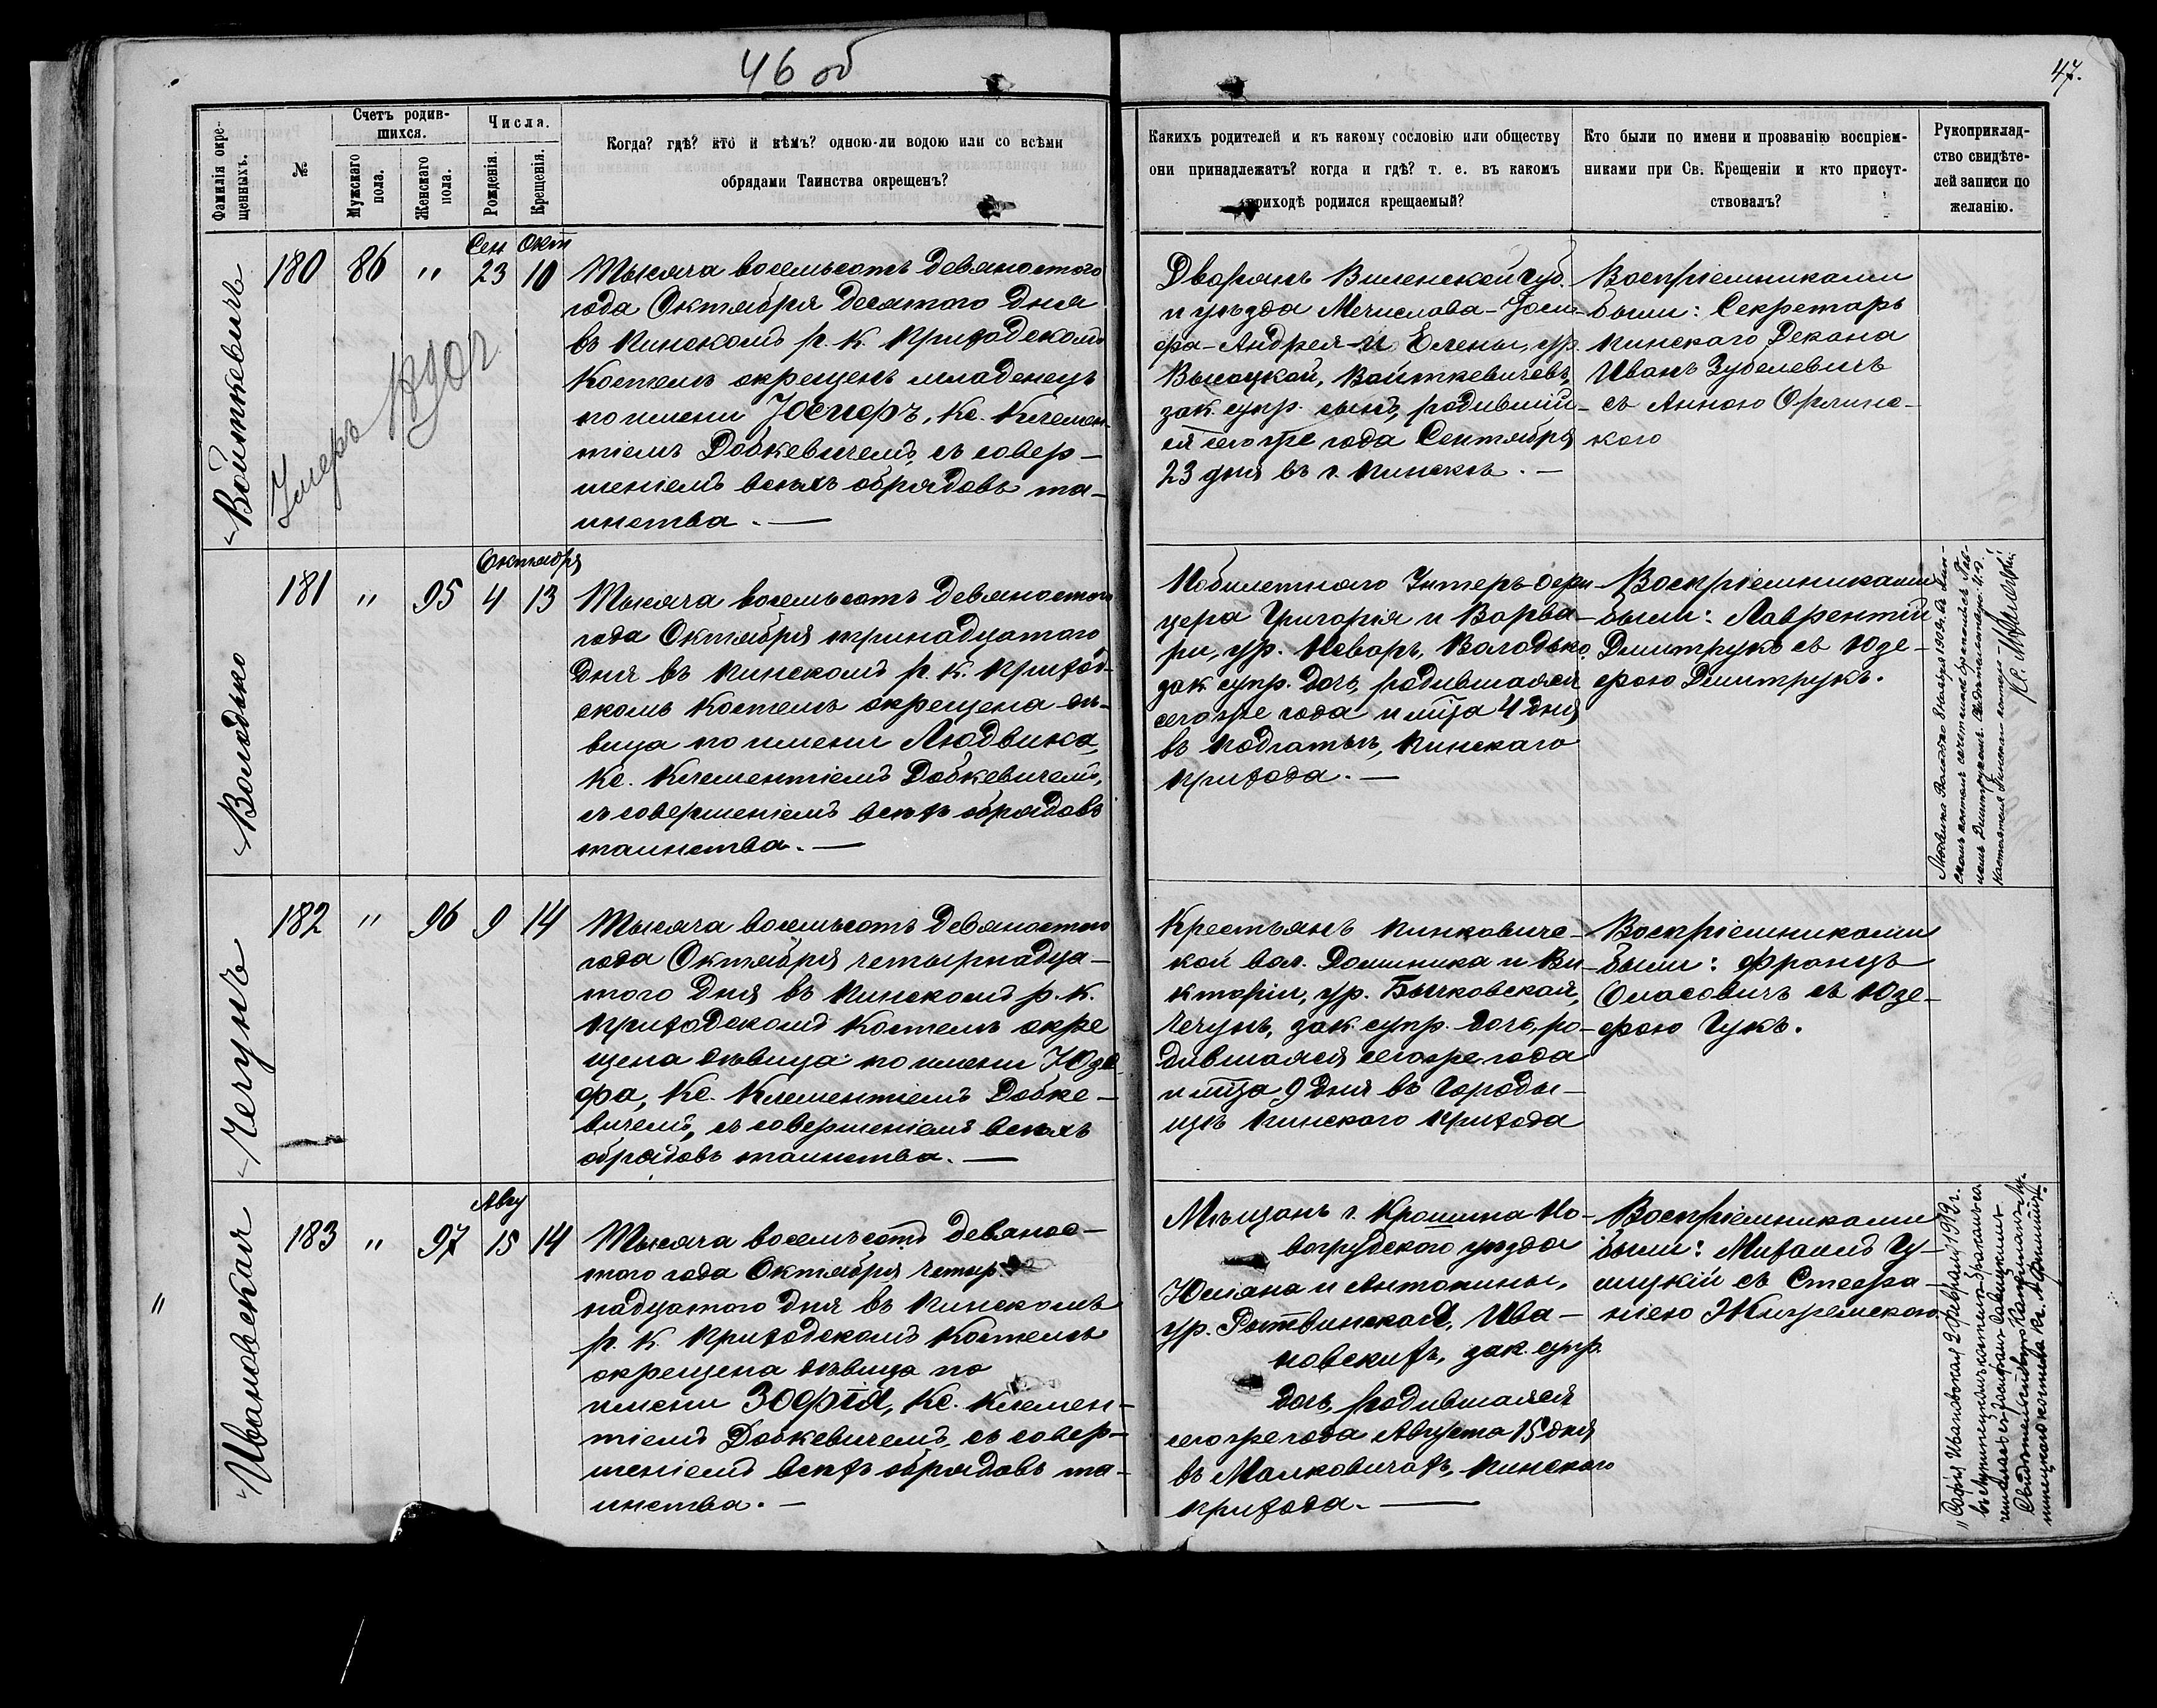 46 об
47.
Фамилія окре-
щенныхъ.
№
Счетъ родив-
шихся.
Мужскаго
пола.
Женскаго
пола.
Числа.
Рожденія.
Крещенія.
Когда? гдѣ? кто и кѣмъ? одною-ли водою или со всѣми
обрядами Таинства окрещенъ?
Какихъ родителей и къ какому сословію или обществу
они принадлежатъ? когда и гдѣ? т. е. въ какомъ
приходѣ родился крещаемый?
Кто были по имени и прозванію воспріем-
никами при Св. Крещеніи и кто присут-
ствовалъ?
Рукоприклад-
ство свидѣте-
лей записи по
желанію.
Войткевичъ
180 86 " Сен 23 Окт 10
Умеръ
Тысяча восемьсотъ девяностого
года Октября десятого дня
въ Пинскомъ р. к. приходскомъ
костелѣ окрещенъ младенецъ
по имени Юсифъ, Кс. Клемен-
тіемъ Добкевичемъ, съ совер-
шеніемъ всѣхъ обрядовъ та-
инства. —
Дворянъ Виленской губ.
и уѣзда Мечислава-Іоси-
фа-Андрея и Елены, ур.
Высоцкой, Войткевичевъ,
зак. супр. сынъ, родившій-
ся сего же года Сентября
23 дня въ г. Пинскѣ. —
Воспріемниками
были: Секретарь
Пинскаго Декана
Иванъ Зубелевичъ
съ Анною Орлинс-
кого
Володько
181 " 95 Октября 4 13
Тысяча восемьсотъ девяностого
года Октября тринадцатого
дня въ Пинскомъ р. к. приход-
скомъ костелѣ окрещена дѣ-
вица по имени Людвика,
Кс. Клементіемъ Добкевичемъ,
съ совершеніемъ всѣхъ обрядовъ
таинства. —
Побилетного Унтеръ-офи-
цера Григорія и Варва-
ры, ур. Неваръ, Володько,
зак. супр. дочь, родившаяся
сего же года и мца 4 дня
въ Подгатьѣ, Пинскаго
прихода. —
Воспріемниками
были: Лаврентій
Дмитрукъ съ Юзе-
фою Дмитрукъ.
Людвика Володько
Чечунъ
182 " 96 9 14
Тысяча восемьсотъ девяностого
года Октября четырнадца-
того дня въ Пинскомъ р. к.
приходскомъ костелѣ окре
щена дѣвица по имени Юзе-
фа, Кс. Клементіемъ Добке-
вичемъ, съ совершеніемъ всѣхъ
обрядовъ таинства. —
Крестьянъ Пинковичс-
кой вол. Доминика и Ви-
кторіи, ур. Бычковской,
Чечунъ, зак. супр. дочь, ро-
дившаяся сего же года
и мца 9 дня въ Городы-
щѣ Пинского прихода
Воспріемниками
были: Францъ
Оласовичъ съ Юзе-
фою Чукъ.
Ивановская
183 " 97 Авгу 15 14
Тысяча восемьсотъ девянос-
того года Октября четыр-
надцатого дня въ Пинскомъ
р. к. приходскомъ костелѣ
окрещена дѣвица по
имени Зофія, Кс. Клемен-
тіемъ Добкевичемъ, съ совер-
шеніемъ всѣхъ обрядовъ та-
инства. —
Мѣщанъ г. Крошина Но-
вогрудского уѣзда
Юліана и Антонины,
ур. Ротвинской, Ива-
новскихъ, зак. супр.
дочь, родившаяся
сего же года Августа 15 дня
въ Малковичахъ, Пинского
прихода. —
Воспріемниками
были: Михаилъ Гу-
лицкій съ Стефа-
ніею Жигремскою
"Софія Ивановская 2 февраля 1912 г.
"